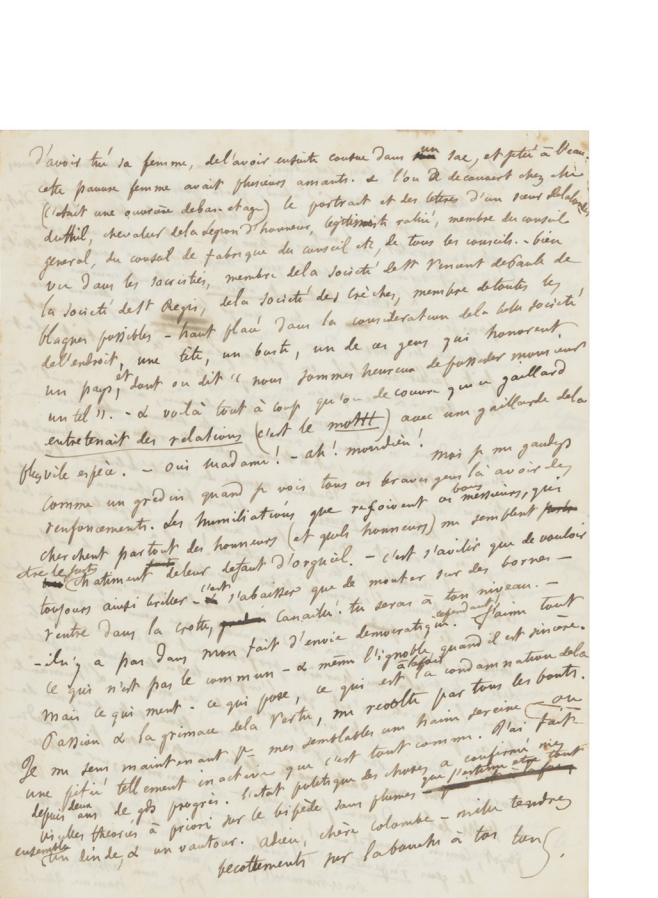 d'avoir tué sa femme, de l'avoir ensuite cousue dans un sac, et jeté à l'eau.
cette pauvre femme avait plusieurs amants. & l'on a decouvert chez elle
(c'était une ouvrière de bas etage) le portrait et des lettres d'un sieur Delaborde
duthil, chevalier de la légion d'honneur, légitimiste rallié, membre du conseil
general, du conseil de fabrique du conseil etc, de tous les conseils. - bien
vu dans les sacristies, membre de la societé de St Vincent de Paule de
la societé de St Régis, de la societé des Crèches, membre de toutes les
blagues possibles - haut placé dans la consideration de la belle societé
de l'endroit, une tête, un buste, un de ces gens qui honorent
un pays, et dont on dit « nous sommes heureux de posseder monsieur
un tel ». - & voilà tout à coup qu'on decouvre que ce gaillard
entretenait des relations (c'est le mot!!!) avec une gaillarde de la
plus vile espèce. - oui madame! - ah! mondieu! moi je me gaudys
comme un gredin quand je vois tous ces braves gens là avoir des
renfoncements. Les humiliations que reçoivent ces bons messieurs, qui
cherchent partout des honneurs (et quels honneurs) me semblent
être le juste chatiment de leur defaut d'orgueil. - c'est s'avilir que de vouloir
toujours ainsi briller - c'est s'abaisser que de monter sur des bornes -
rentre dans la crotte, canaille! tu seras à ton niveau. -
- il n'y a pas dans mon fait d'envie democratique. cependant J'aime tout
ce qui n'est pas le commun - & même l'ignoble, quand il est sincère.
mais ce qui ment - ce qui pose, ce qui est à la fois la condamnation de la
Passion & la grimace de la Vertu, me revolte par tous les bouts.
Je me sens maintenant pr mes semblables une haine sereine - ou
une pitié tellement inactive que c'est tout comme. J'ai fait
depuis deux ans de gds progrès. L'etat politique des choses a confirmé mes
vieilles theories à priori sur le bipède sans plumes
ensemble un dinde & un vautour. adieu, chère colombe - mille tendres
becottements sur la bouche à toi ton G.